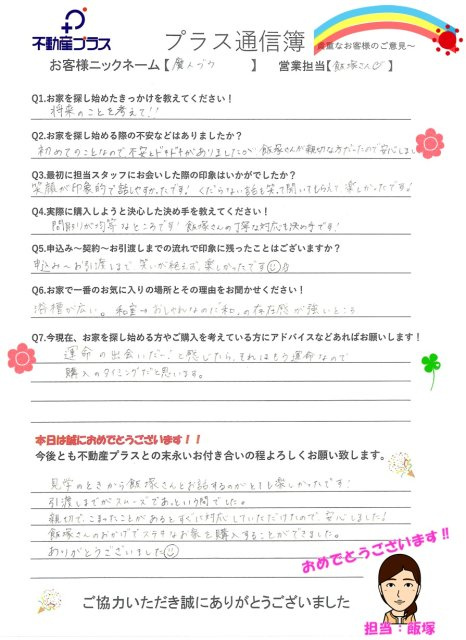 不動産プラス
プラス通信簿 ~貴重なお客様のご意見~
お客様ニックネーム【魔人ブウ】 営業担当【飯塚さん】
Q1.お家を探し始めたきっかけを教えてください！
将来のことを考えて!!
Q2.お家を探し始める際の不安などはありましたか？
初めてのことなので不安とドキドキがありましたが飯塚さんが親切な方だったので安心しまし
Q3.最初に担当スタッフにお会いした際の印象はいかがでしたか？
笑顔が印象的で話しやすかったです！くだらない話も笑って聞いてもらえて楽しかったです!
Q4.実際に購入しようと決心した決め手を教えてください！
間取りが均等なところです！飯塚さんの丁寧な対応も決め手です！
Q5.申込み～契約～お引渡しまでの流れで印象に残ったことはございますか？
申込み～お引渡しまで笑いが絶えず楽しかったです
Q6.お家で一番のお気に入りの場所とその理由をお聞かせください！
浴槽が広い。和室→おしゃれなのに「和」の存在感が強いところ
Q7.今現在、お家を探し始める方やご購入を考えている方にアドバイスなどあればお願いします！
運命の出会いだ…と感じたら、それはもう運命なので
購入のタイミングだと思います。
本日は誠におめでとうございます！！
今後とも不動産プラスとの末永いお付き合いの程よろしくお願い致します。
見学のときから飯塚さんとお話するのがとても楽しかったです！
引渡しまでがスムーズであっという間でした。
親切で、こまったことがあるとすぐに対応していただけたので、安心しました!
飯塚さんのおかげでステキなお家を購入することができました。
ありがとうございました
おめでとうございます!!
ご協力いただき誠にありがとうございました
担当：飯塚